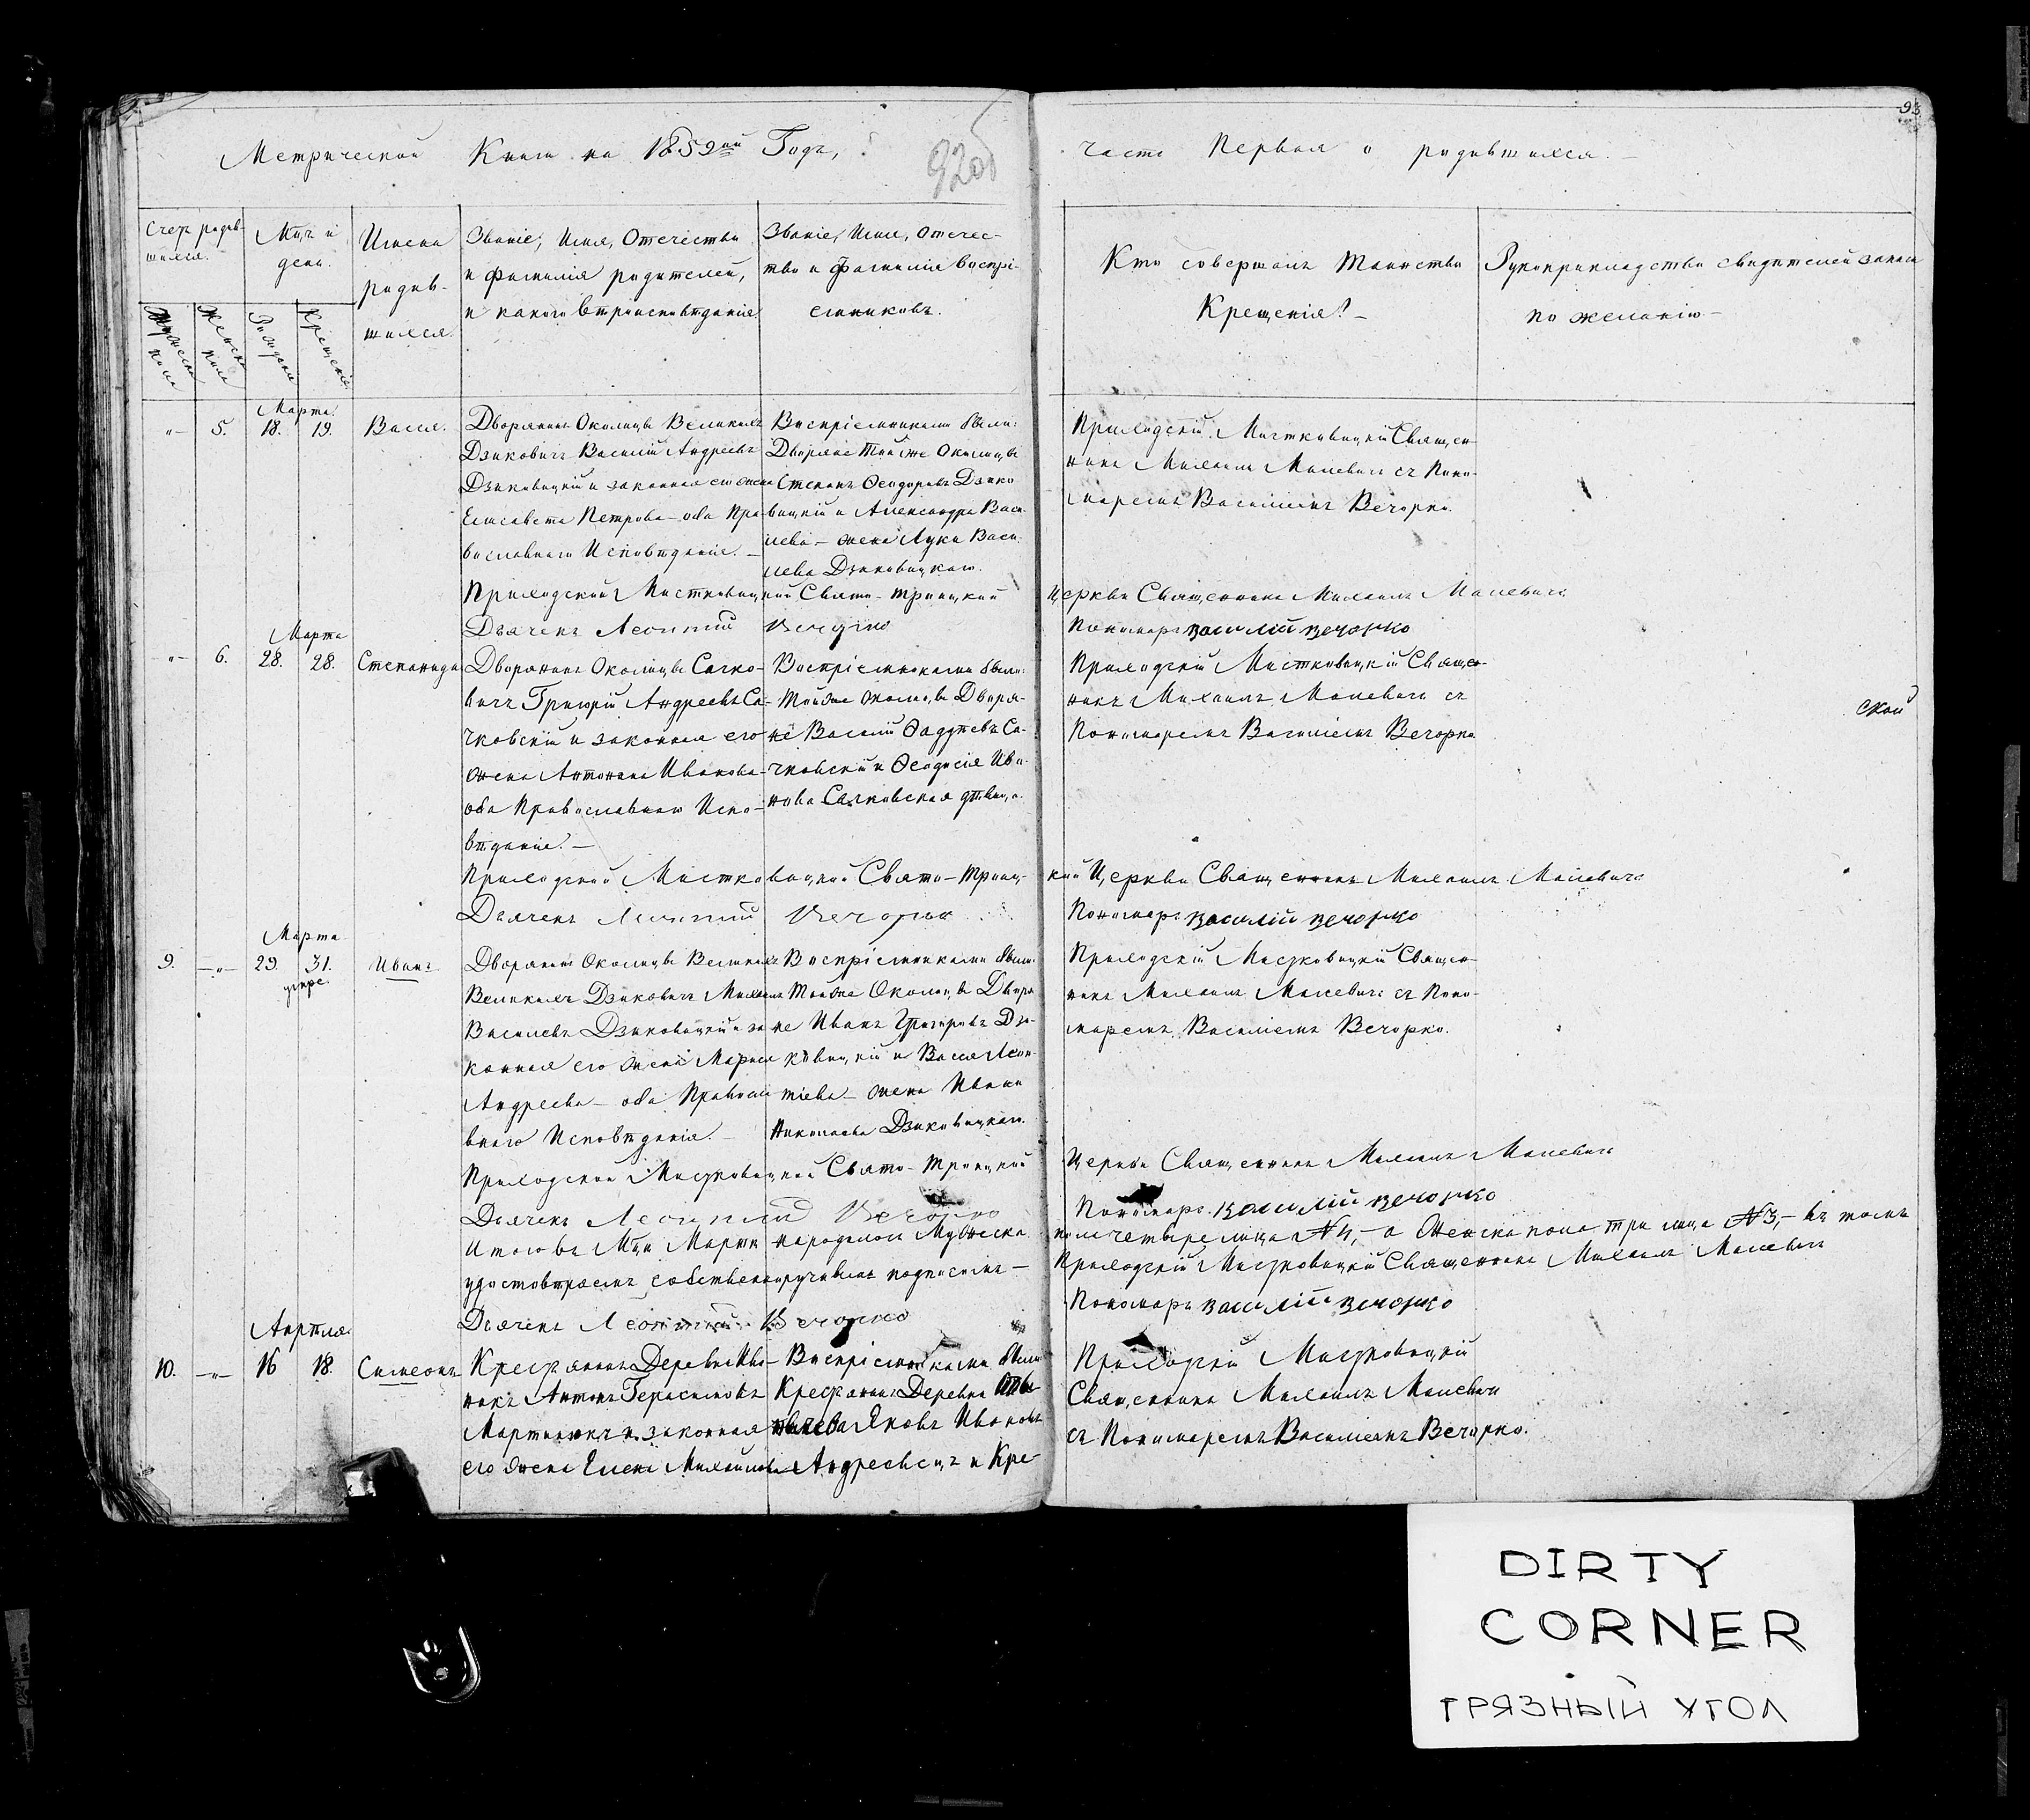 93
Метрической Книги на 1859ый Годъ,
92об
часть Первая о родившихся.
Счетъ родив-
шихся.
Мужеска
пола
Женска
пола
Мѣц и
дени.
Рожденія
Крещенія
Имена
родив-
шихся
Званіе, Имя, Отечество
и фамилія родителей,
и какого вѣроисповѣданія
Званіе, Имя, Отечес-
тво и фамилія воспрі-
емниковъ.
Кто совершалъ Таинство
Крещенія? -
Рукоприкладство свидѣтелей записи
по желанію -
Марта.
"- 5. 18. 19. Васса.
Дворянинъ Околицы Великихъ
Дзиковичъ Василій Андреевъ
Дзиковицкій и законная его жена
Елисавета Петрова - оба Пра-
вославнаго Исповѣданія. -
Воспріемниками были:
Дворяне Той же Околицы
Степанъ Ѳеодоровъ Дзико
вицкій и Александра Васи-
лева - жена Луки Васи-
лева Дзиковицкаго.
Приходскій Мистковицкій Священ-
никъ Михаилъ Малевичъ съ Поно-
маремъ Василіемъ Вечорко.
Приходской Мистковицкой Свято-Троицкой Церкви Священникъ Михаилъ Малевичъ
Дьячекъ Леонтій Вечорко Пономарь Василій Вечорко
Марта
"- 6. 28. 28. Степанида
Дворянинъ Околицы Сачко-
вичъ Григорій Андреевъ Са-
чковскій и законная его
жена Антонина Иванова -
оба Православнаго Испо-
вѣданія. -
Воспріемниками были:
Той же Околицы Дворя-
не Василій Ѳаддѣевъ Са-
чковскій и Ѳеодосія Ива-
нова Сачковская дѣвица.
Приходскій Мистковицкій Священ-
никъ Михаилъ Малевичъ съ
Пономаремъ Василіемъ Вечорко
ской
Приходской Мистковицкой Свято-Троиц-
кой Церкви Священникъ Михаилъ Малевичъ
Дьячекъ Леонтій Вечорко Пономарь Василій Вечорко
Марта
9. -"- 29. 31. Иванъ
Дворянинъ Околицы Великихъ
Великихъ Дзиковичъ Михаилъ
Василевъ Дзиковицкій и за
конная его жена Марія
Андреева - оба Правосла
внаго Исповѣданія. -
Воспріемниками были:
Той же Околицы Дворя
не Иванъ Григоровъ Дзи-
ковицкій и Васса Леон-
тіева - жена Ивана
Николаева Дзиковицкаго.
Приходскій Мистковицкій Священ-
никъ Михаилъ Малевичъ съ Поно-
маремъ Василіемъ Вечорко.
Приходской Мистковицкой Свято-Троицкой Церкви Священникъ Михаилъ Малевичъ
Дьячекъ Леонтій Вечорко Пономарь Василій Вечорко
Итого въ Мцѣ Мартѣ народилось Мужеска пола четыре лица №4,- а Женска пола три лица №3,- въ томъ
удостовѣряемъ собственноручнымъ подписомъ - Приходскій Мистковицкій Священникъ Михаилъ Малевичъ
Дьячекъ Леонтій Вечорко Пономарь Василій Вечорко
Апрѣля
10. -"- 16 18. Симеонъ
Крестьянинъ Деревни Ива-
никъ Антонъ Герасимовъ
Мартинюкъ и законная
его жена Елена Михайлова
Воспріемниками были
Крестьянинъ Деревни
Яковъ Ивановъ
Андреевецъ и Кре-
Приходскій Мистковицкій
Священникъ Михаилъ Малевичъ
съ Пономаремъ Василіемъ Вечорко.
DIRTY
CORNER
ГРЯЗНЫЙ УГОЛ